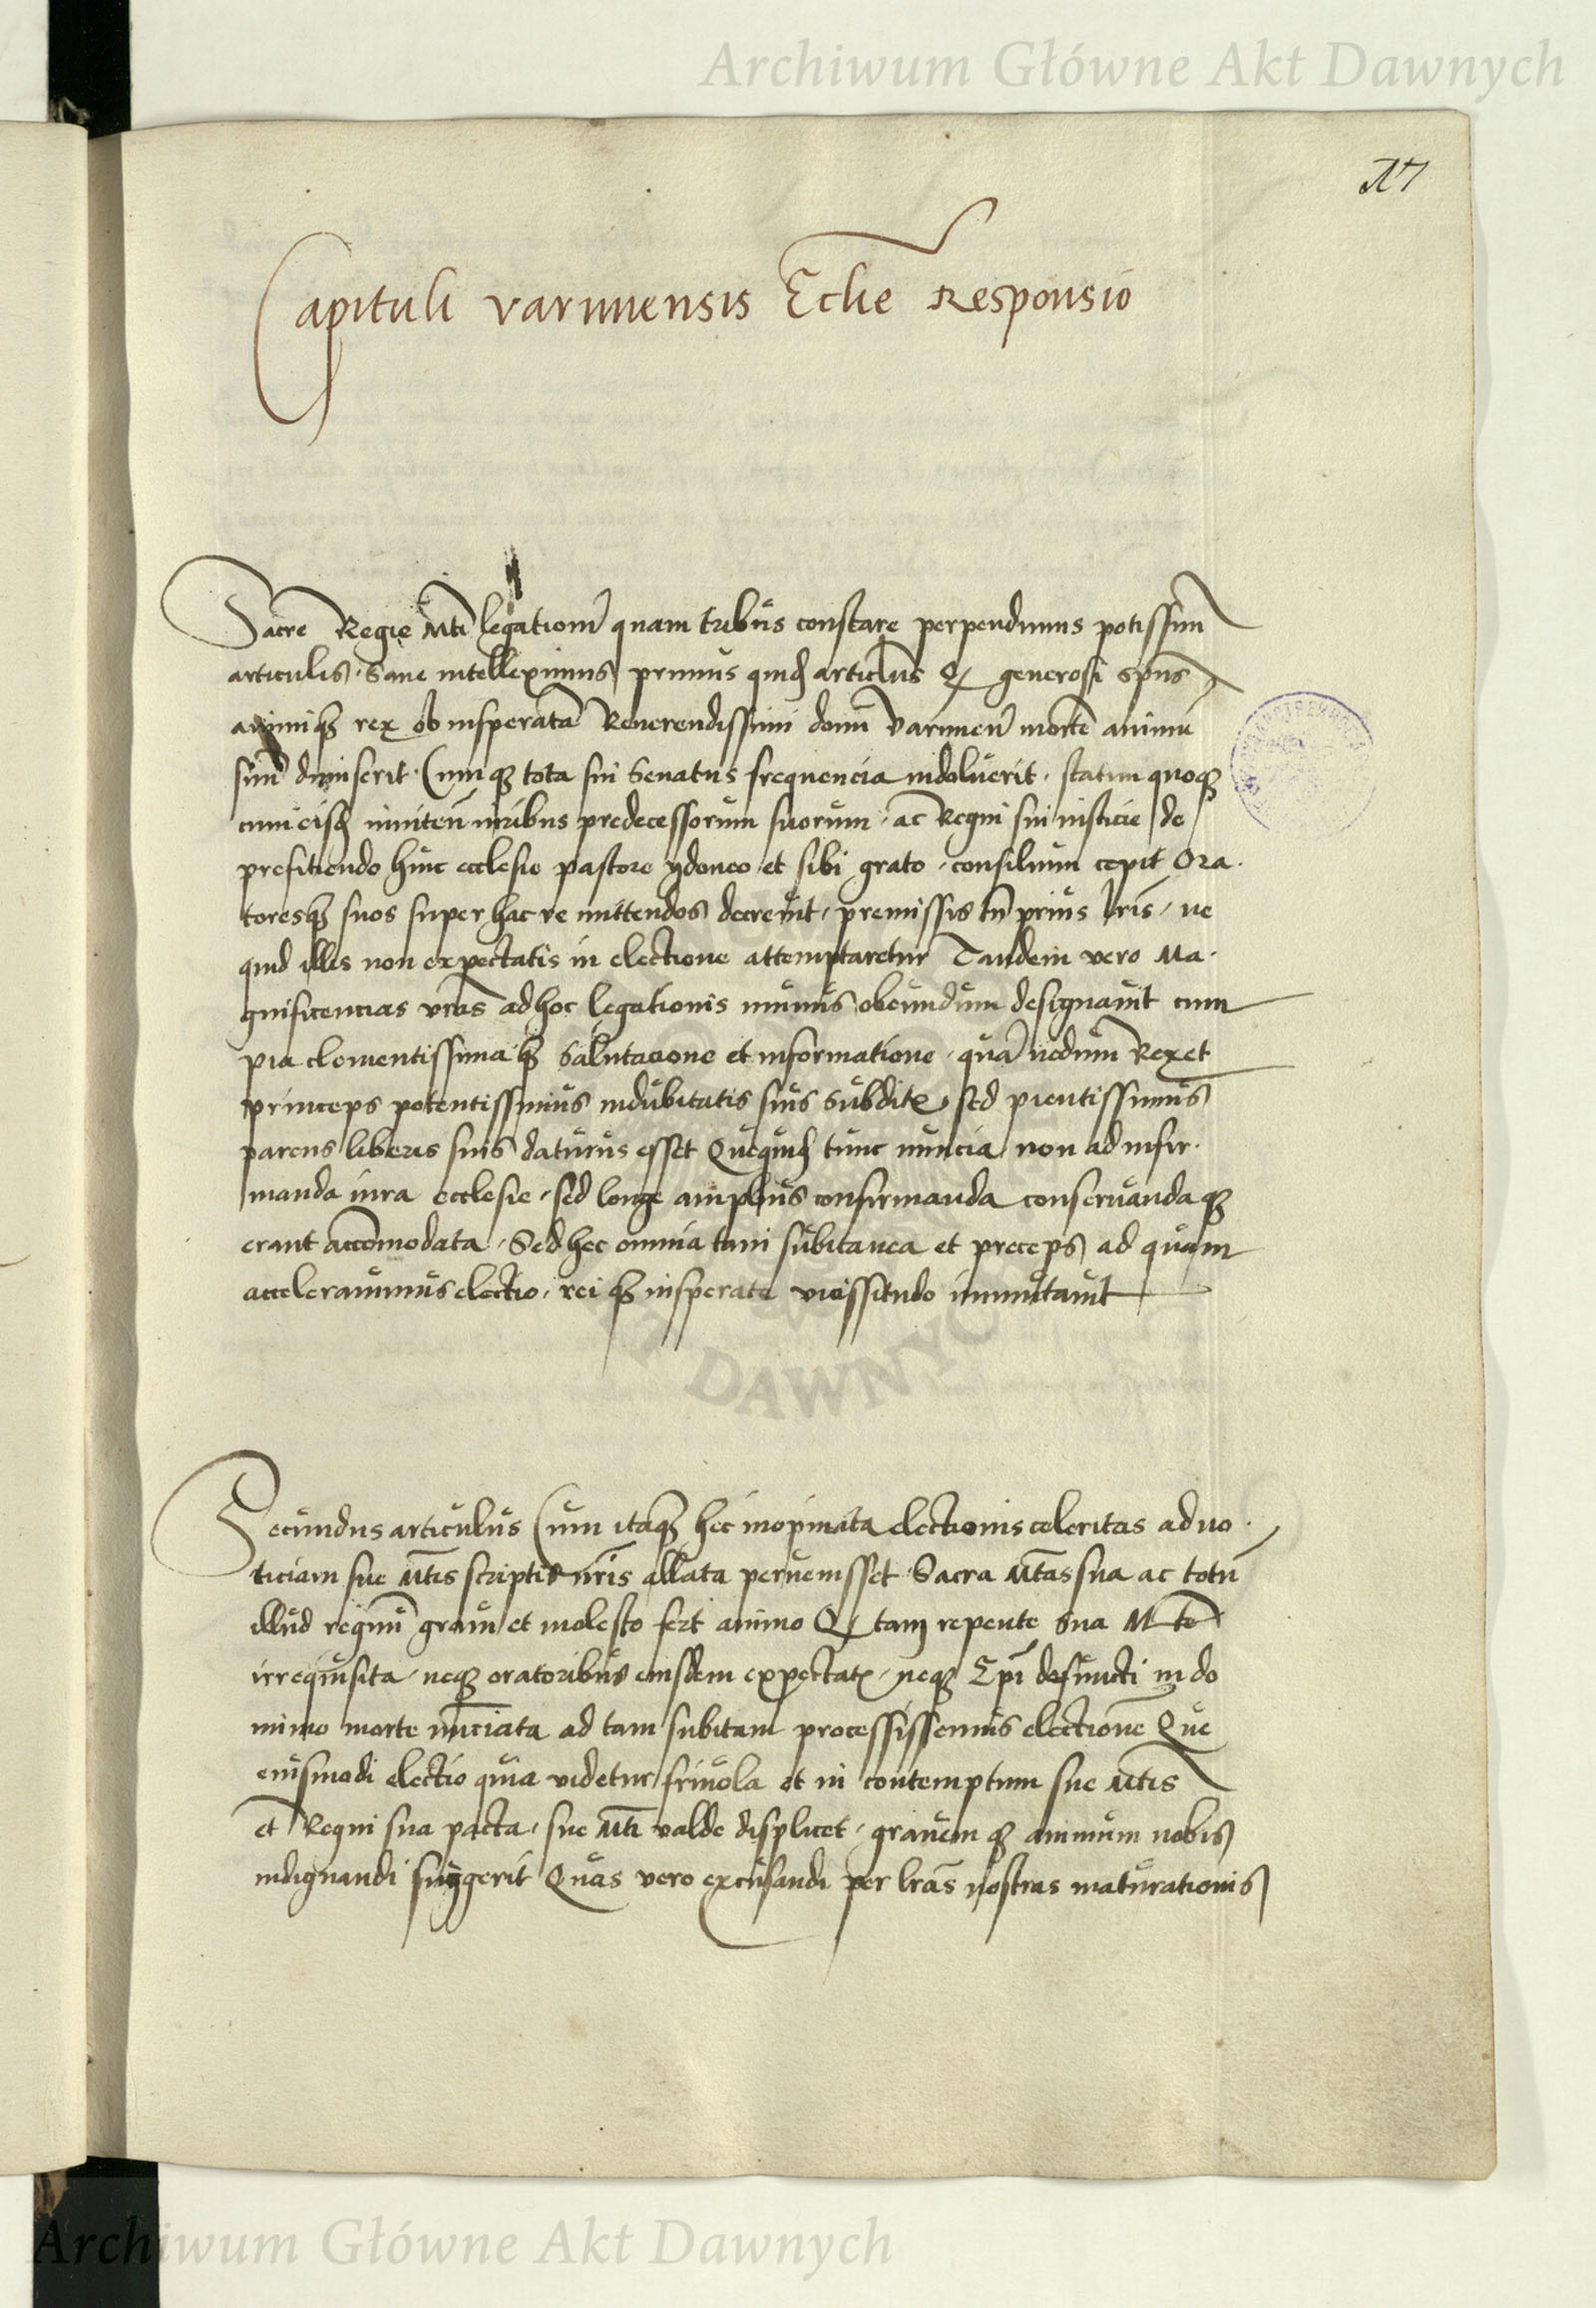 Archiwum Główne Akt Dawnych
Capituli varmiensis Ecclie Responsio
Sacre Regie Mti legationē quam tribus constare perpendimus potissimū
articulis. Sane intelleximus primus quidē articulus Q generosi spūs
animiq3 rex ob insperatā Reverendissimi domī varmieñ mortē animū
suū dimiserit. Cumq3 tota sui Senatus frequencia indoluerit. statim quoq3
cum eisdē predecessorum suorum. ac Regni sui iusticie de
prefitiendo huic ecclesie pastore ydoneo et sibi grato. consilium cepit Ora.
toresq3 suos super hac re mittendos decrevit, premissis tñ prius lris, ne
quid illis non expectatis in electione attemptaretur Tandem vero Ma.
gnificencias vras ad hoc legationis munus obeundum designavit cum
pia clementissimaq3 salutacione et informatione. quā nedum Rex et
princeps potentissimus indubitatis suis subditis, sed pientissimus
parens liberis suis daturus esset Quequidē tunc nuncia non ad infir.
manda iura ecclesie. sed longe amplius confirmanda conservandaq3
erant accōmodata. Sed hec omnia tam subitanea et preceps ad quam
acceleravimus electio. rei q3 insperate vicissitudo immutavit
Secundus articulus Cum itaq3 hec inopinata electionis celeritas ad no.
ticiam sue Mtis scriptis nris allata pervenisset Sacra Mtas sua ac totū
illud regnū gravi et molesto fert animo Q tam repente sua Mte
irrequisita. neq3 oratoribus eiusdem expectatis. neq3 Epi defuncti in do
mino morte nūciata ad tam subitam processissemus electionē Que
eiusmodi electio quia videtur frivola et in contemptum sue Mtis
et Regni sua pacta. sue Mti valde displicet. gravem q3 animum nobis
indignandi suggerit Quas vero excusandi per lras nostras maturationis
DAWNYC
Archiwum Główne Akt Dawnych